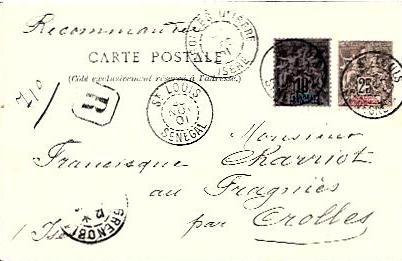 Recommandée
CARTE POSTALE
(Côté exclusivement réservé à l'adresse.)
R
ST LOUIS
NOV
01
SENEGAL
ISERE
10
25
Monsieur
Francisque Charriot
au Fragniès
par Crolles
Isè
GRENOBL